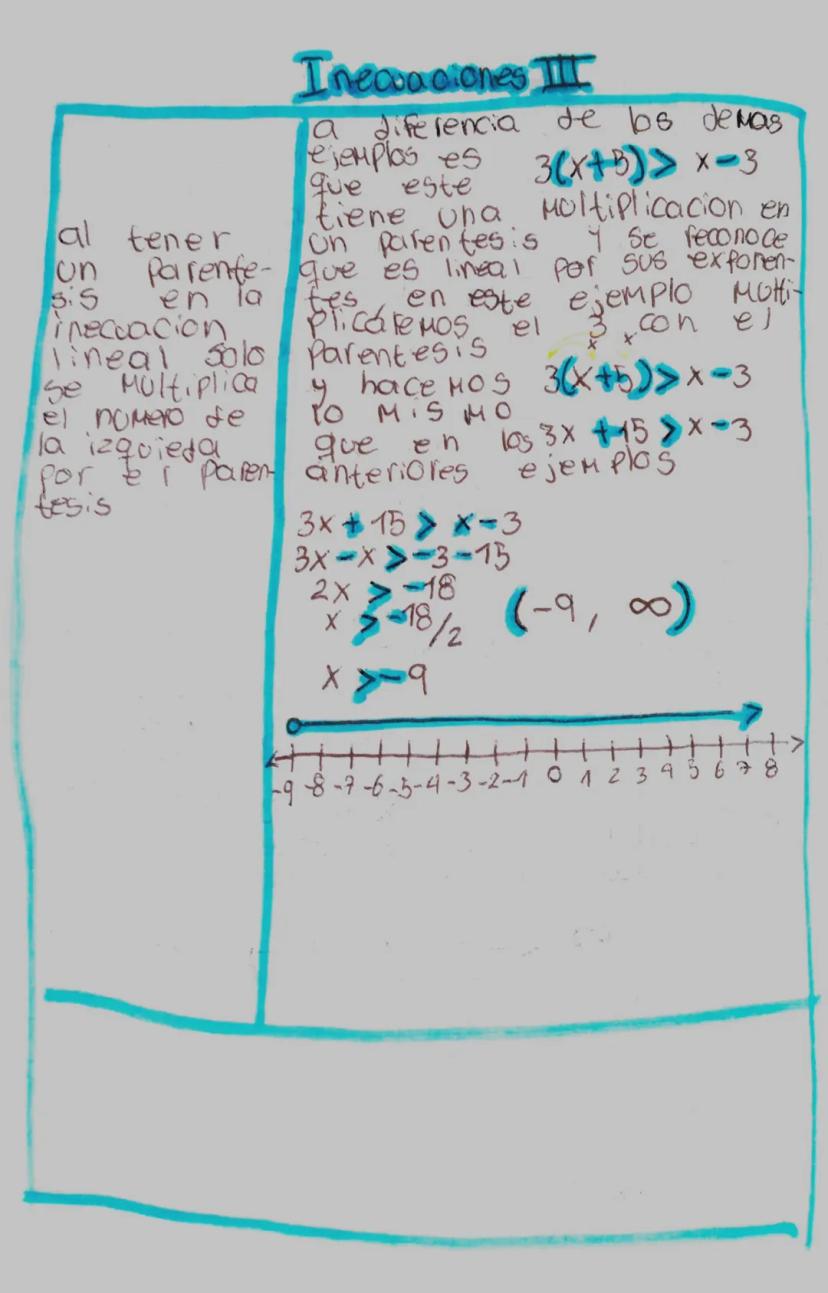 Inecuaciones III
al tener
un parente-
sis en la
inecuacion
lineal solo
se multiplica
el numero de
la izquieda
por el paren-
tesis
a diferencia de los demas
ejemplos es 3(x+5)> x-3
que este
tiene una multiplicacion en
un parentesis y se reconoce
que es lineal por sus exponen-
tes, en este ejemplo multi-
plicaremos el 3 con el
parentesis
y hacemos 3(x+5)>x-3
lo mismo
que en los 3x +15 >x-3
anteriores ejemplos
3x + 15 > x-3
3x-x>-3-15
2x > -18
x >-18/2 (-9, ∞)
x >-9
-9 -8 -7 -6 -5 -4 -3 -2 -1 0 1 2 3 4 5 6 7 8